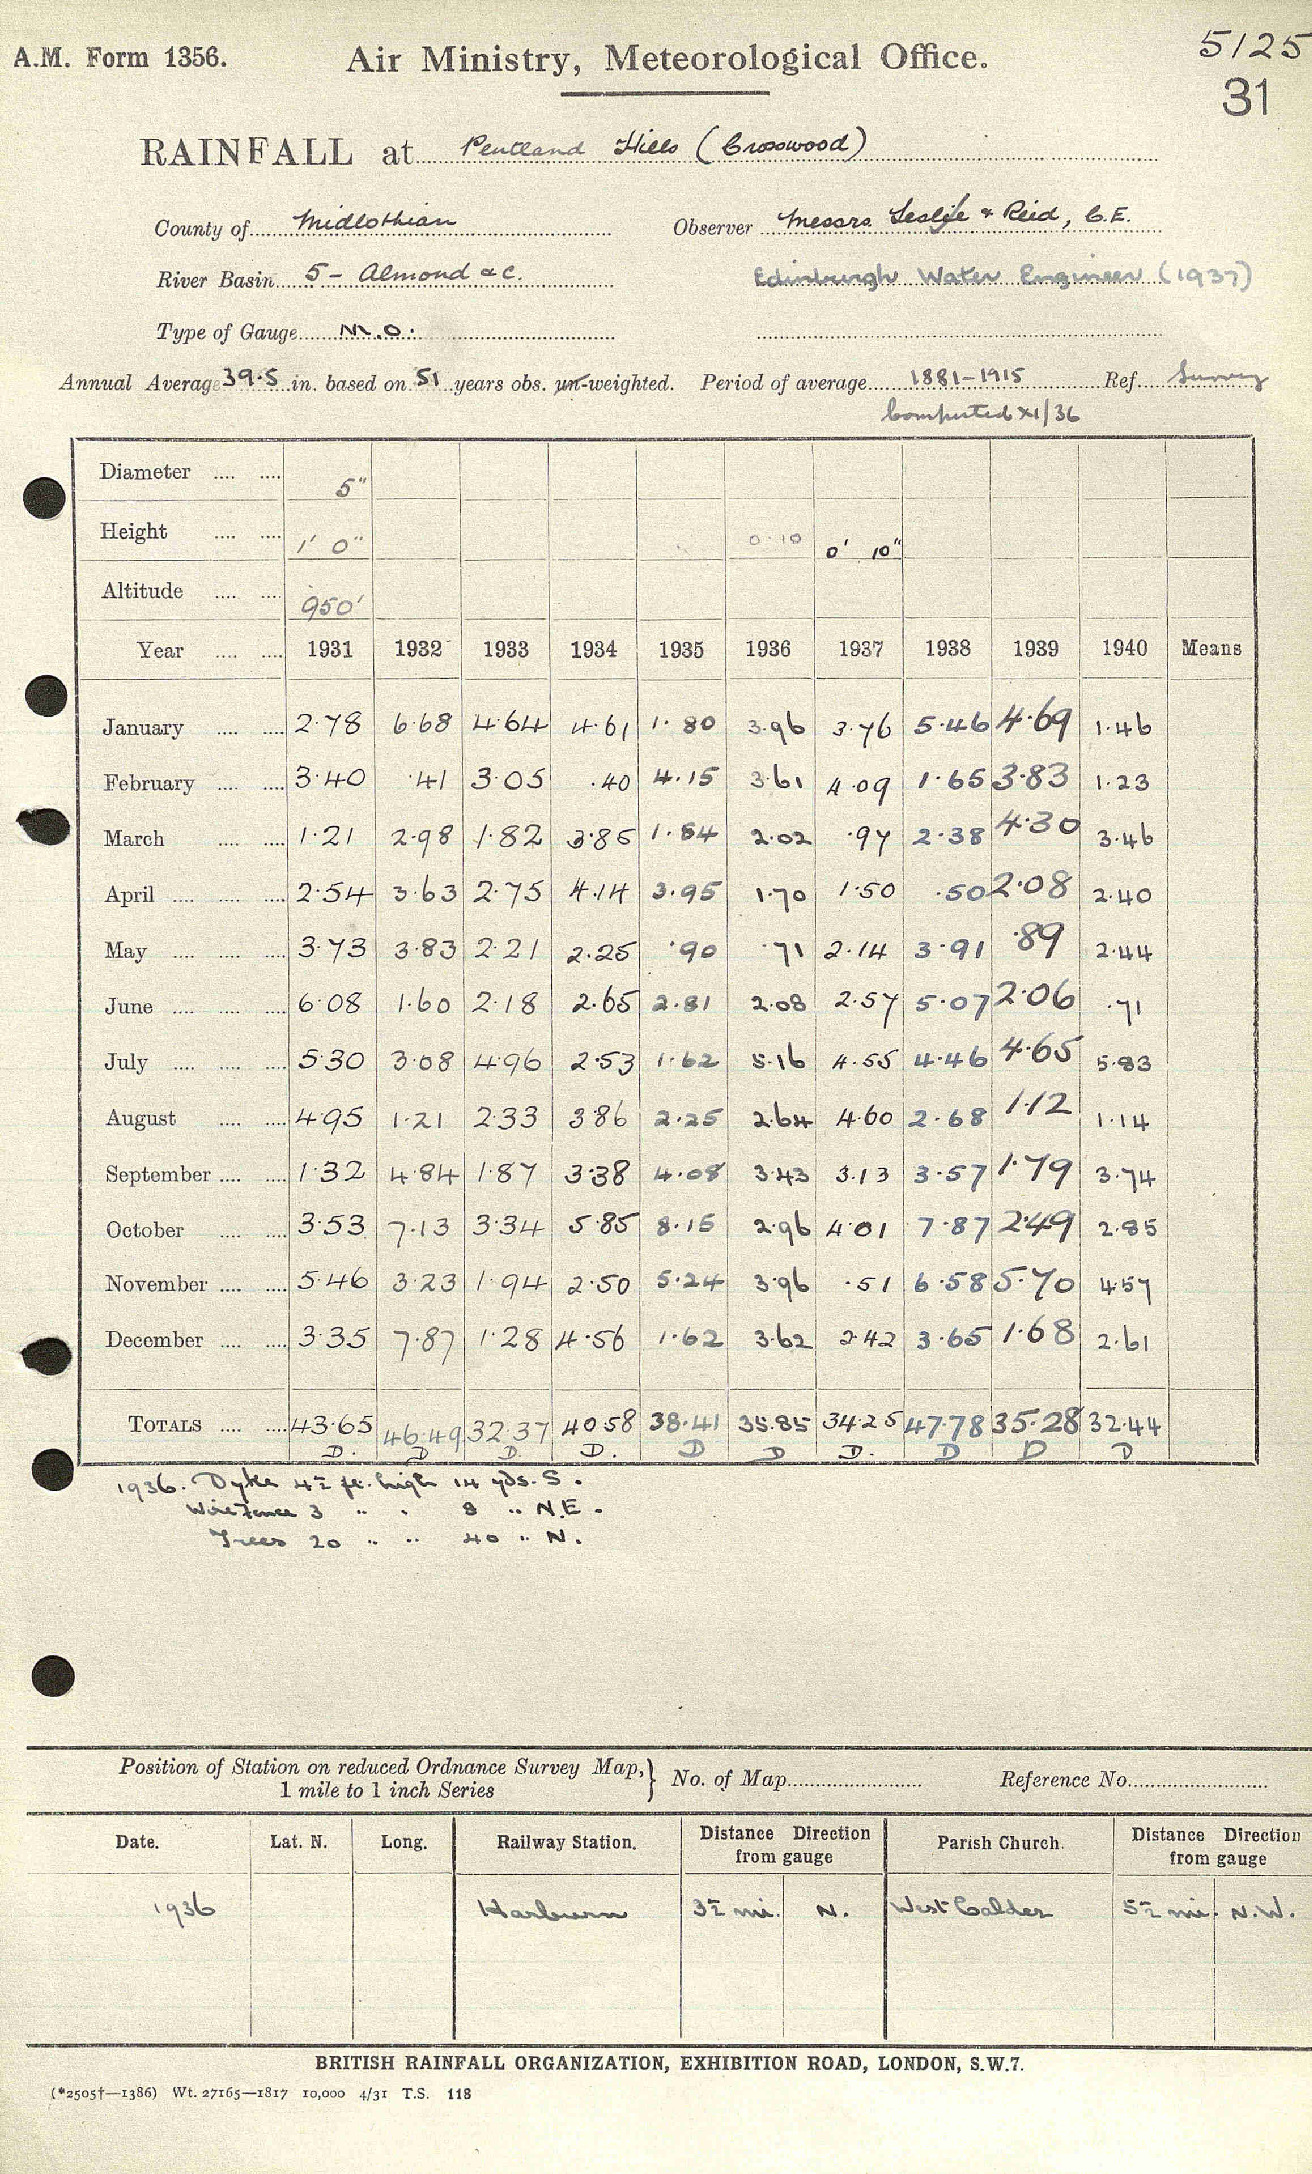 5125
31
A.M. Form 1356. Air Ministry, Meteorological Office.
RAINFALL at Pentland Hills (Crosswood)
County of Midlothian Observer Messrs. Leslie & Reid, C.E.
River Basin 5 - Almond &c. Edinburgh Water Engineer (1937)
Type of Gauge M.O.
Annual Average 39.5 in. based on 51 years obs. un-weighted. Period of average 1881-1915 Ref. Survey
Computed XI/36
Diameter 5"
Height 1' 0" 0·10 0' 10"
Altitude 950'
Year 1931 1932 1933 1934 1935 1936 1937 1938 1939 1940 Means
January 2·78 6·68 4·64 4·61 1·80 3·96 3·76 5·46 4·69 1·46
February 3·40 ·41 3·05 ·40 4·15 3·61 4·09 1·65 3·83 1·23
March 1·21 2·98 1·82 3·85 1·84 2·02 ·97 2·38 4·30 3·46
April 2·54 3·63 2·75 4·14 3·95 1·70 1·50 ·50 2·08 2·40
May 3·73 3·83 2·21 2·25 ·90 ·71 2·14 3·91 ·89 2·44
June 6·08 1·60 2·18 2·65 2·81 2·08 2·57 5·07 2·06 ·71
July 5·30 3·08 4·96 2·53 1·62 5·16 4·55 4·46 4·65 5·83
August 4·95 1·21 2·33 3·86 2·25 2·64 4·60 2·68 1·12 1·14
September 1·32 4·84 1·87 3·38 4·08 3·43 3·13 3·57 1·79 3·74
October 3·53 7·13 3·34 5·85 8·15 2·96 4·01 7·87 2·49 2·85
November 5·46 3·23 1·94 2·50 5·24 3·96 ·51 6·58 5·70 4·57
December 3·35 7·87 1·28 4·56 1·62 3·62 2·42 3·65 1·68 2·61
TOTALS 43·65 46·49 32·37 40·58 38·41 35·85 34·25 47·78 35·28 32·44
D. D D. D. D D D. D D D
1936. Dyke 4½ ft. high 14 yds. S.
Wire Fence 3 " " 8 " N.E.
Trees 20 " " 40 " N.
Position of Station on reduced Ordnance Survey Map, 1 mile to 1 inch Series } No. of Map Reference No.
Date. Lat. N. Long. Railway Station. Distance Direction from gauge Parish Church. Distance Direction from gauge
1936 Harburn 3½ mi. N. West Calder 5½ mi. N.W.
BRITISH RAINFALL ORGANIZATION, EXHIBITION ROAD, LONDON, S.W.7.
(*2505†—1386) Wt. 27165—1817 10,000 4/31 T.S. 118